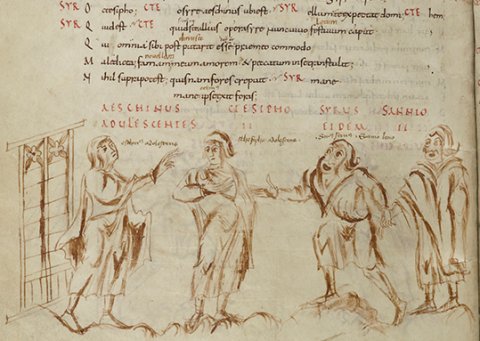 SYR O ctesipho; CTE o syre aeschinus ubi est; SYR ellum te expectat domi; CTE hem
SYR Quid est CTE quid sit illius opera syre nunc vivo festivum caput
Qui omnia sibi post putarit esse prae meo commodo
Maledicta famam meum amorem & peccatum in se transtulit;
Nihil supra potest; quisnam fores crepuit SYR mane
mane ipse exit foras;
AESCHINUS CTESIPHO SYRUS SANNIO
ADULESCENTES II EIDEM II